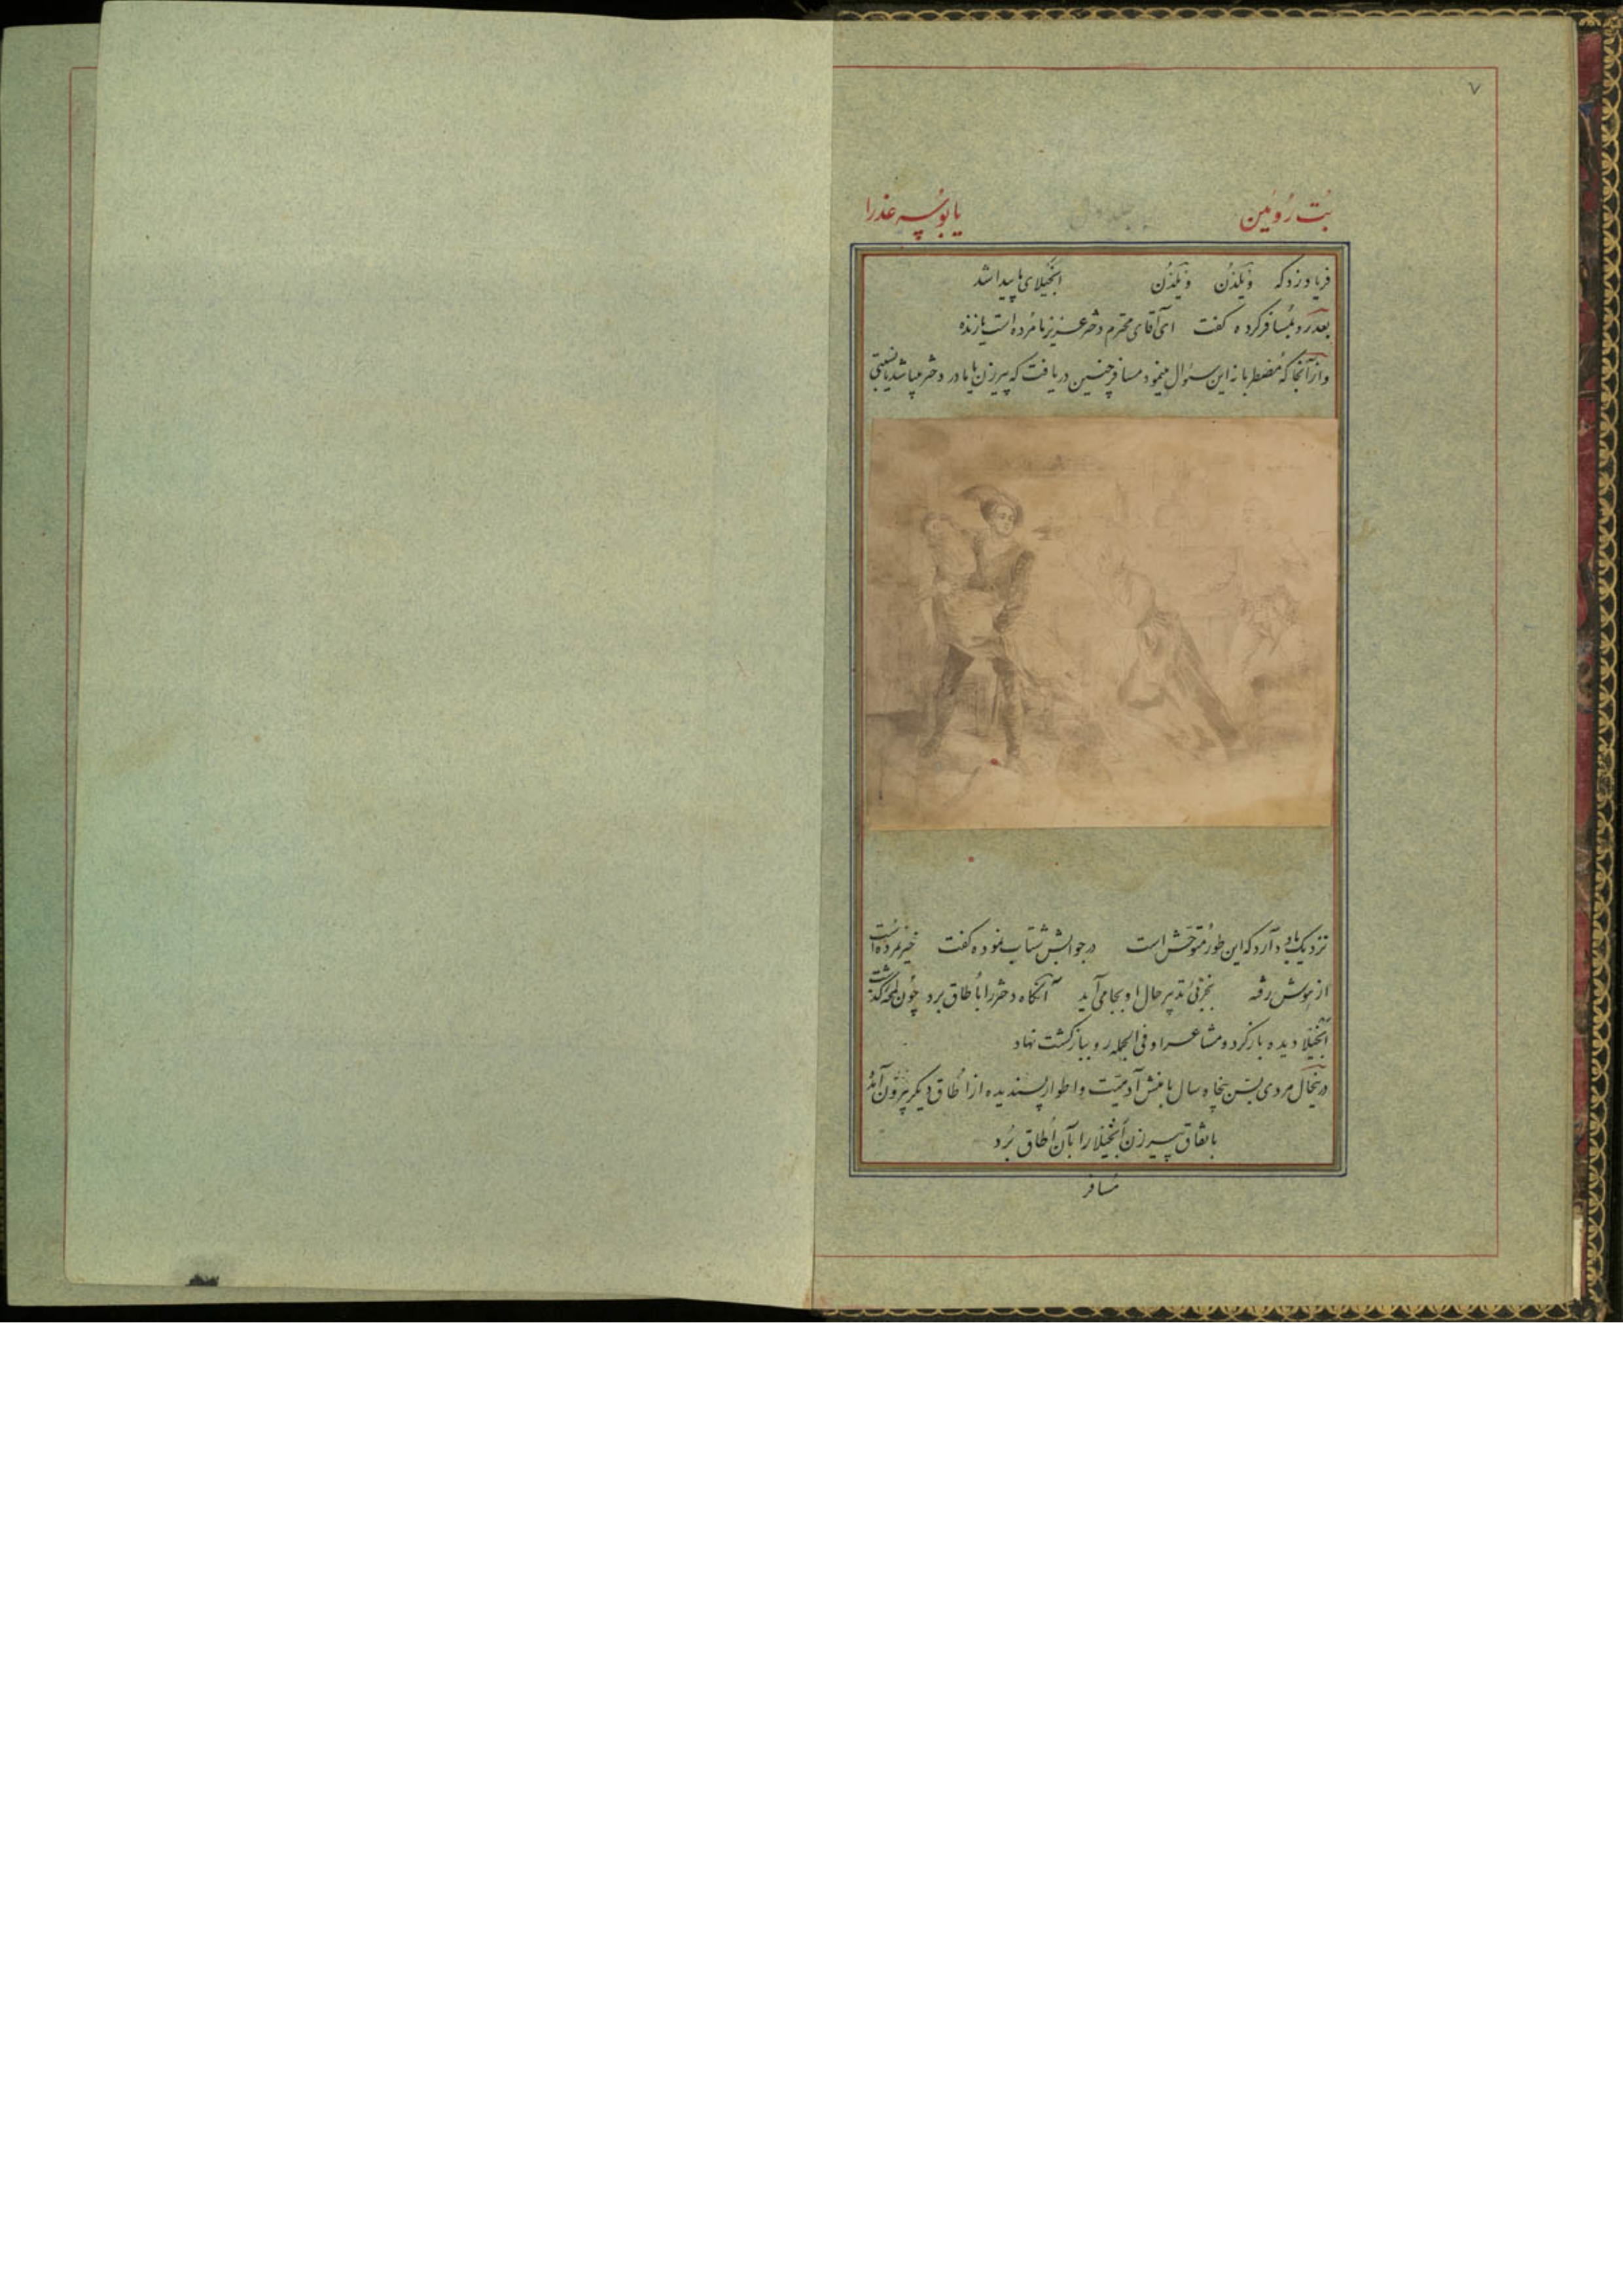 ۷
بُت رُوئین
یا بوسه عذرا
فریاد زد که ویلدُن ویلدُن انجیلای ما پیدا شد
بعد رو بمُسافر کرده گفت ای آقای محترم دختر عزیز ما مُرده است یا زنده
و از آنجا که مُضطربانه این سئوال مینمود مسافر چنین دریافت که پیرزن یا مادر دختر میباشد یا نسبتی
نزدیک بدو دارد که این طور مُتوحّش است در جوابش شتاب نموده گفت خیر نمرده است
از هوش رفته بجزئی تدبیر حال او بجا می‌آید آنگاه دختر را باُطاق برد چُون لمحهٔ گذشت
انجیلا دیده باز کرد و مشاعر او فی الجمله رو ببازگشت نهاد
در اینحال مردی بسن پنجاه سال با منش آدمیّت و اطوار پسندیده از اُطاق دیگر بیرون آمد
باتفاق پیرزن انجیلا را بآن اُطاق بُرد
مُسافر